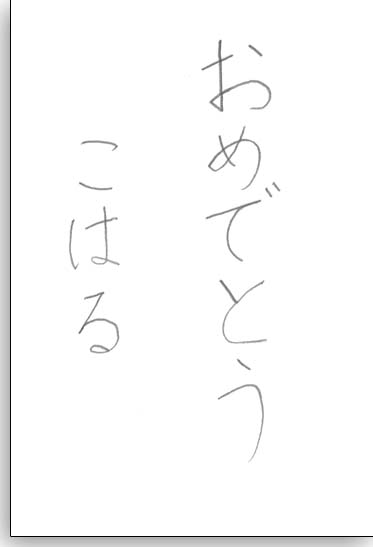 おめでとう
こはる